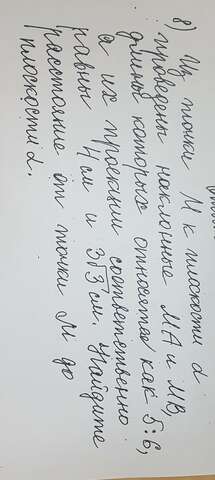 8) Из точки М к плоскости α
проведены наклонные МА и МВ,
длины которых относятся как 5:6,
а их проекции соответственно
равны 4 см и 3√3 см. Найдите
расстояние от точки М до
плоскости α.